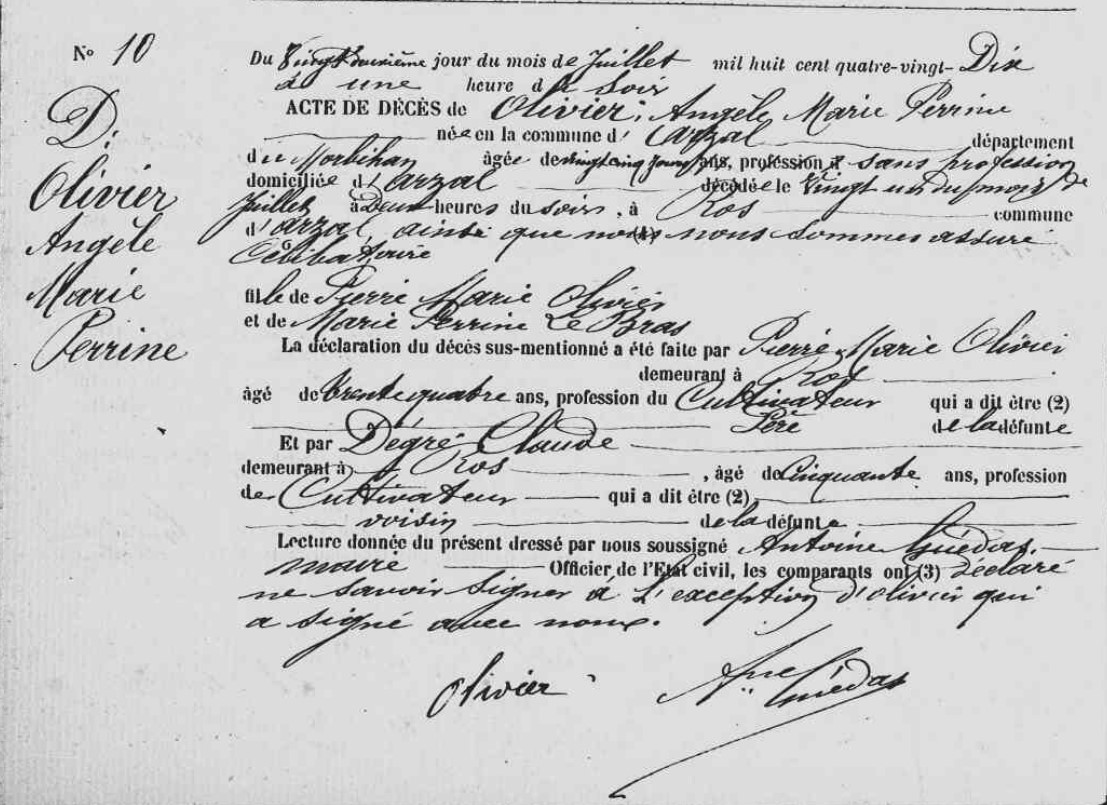 N° 10
D.
Olivier
Angèle
Marie
Perrine
Du Vingt deuxième jour du mois de Juillet mil huit cent quatre-vingt- Dix
à une heure du soir
ACTE DE DÉCÈS de Olivier, Angèle Marie Perrine
née en la commune d' arzal département
du Morbihan âgée de vingt cinq jours ans, profession d sans profession
domiciliée d' arzal décédée le vingt un du mois de
Juillet à Deux heures du soir, à Ros commune
d'arzal, ainsi que nous (1) nous sommes assuré
Célibataire
fille de Pierre Marie Olivier
et de Marie Perrine Le Bras
La déclaration du décès sus-mentionné a été faite par Pierre Marie Olivier
demeurant à Ros
âgé de trente quatre ans, profession du Cultivateur qui a dit être (2)
Père de la défunte
Et par Dégré, Claude
demeurant à Ros, âgé de Cinquante ans, profession
de Cultivateur qui a dit être (2)
voisin de la défunte
Lecture donnée du présent dressé par nous soussigné Antoine Guédas,
maire Officier de l'Etat civil, les comparants ont (3) déclaré
ne savoir signer à l'exception d'olivier qui
a signé avec nous.
Olivier Ane Guédas